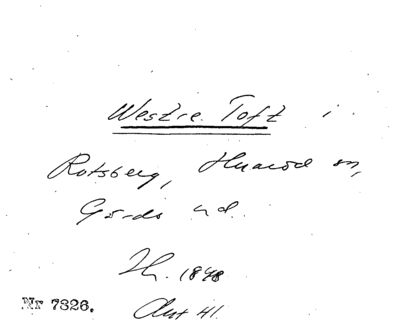 Westre Toft i
Rotsberg, Huaröd sn,
Gärds hd.
Th. 1848
Nr 7326. Akt 41.